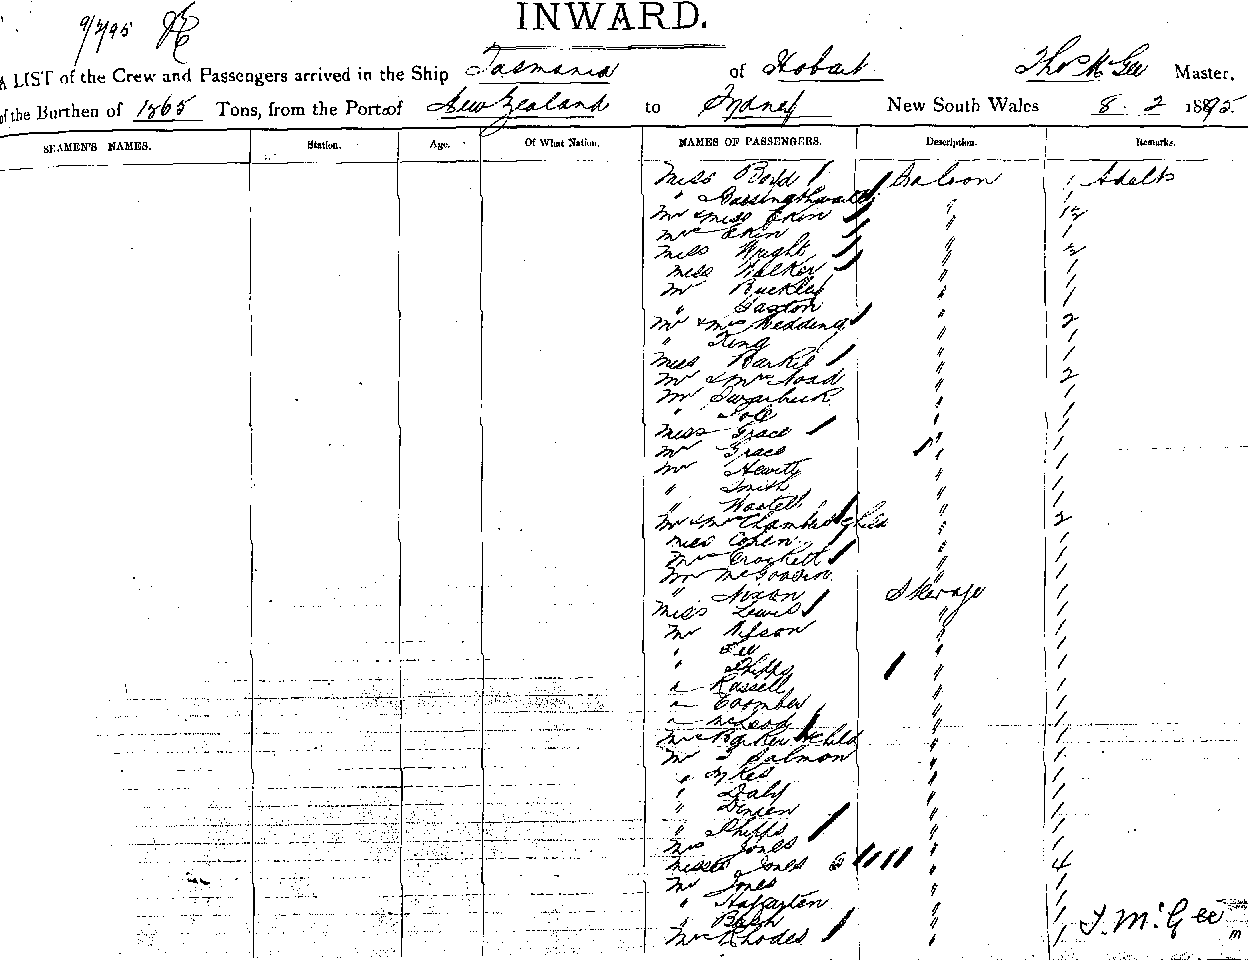 INWARD.
9/2/95
A LIST of the Crew and Passengers arrived in the Ship Tasmania of Hobart Thos McGee Master,
of the Burthen of 1365 Tons, from the Port of New Zealand to Sydney New South Wales 8. 2 1895
SEAMEN'S NAMES. Station. Age. Of What Nation. NAMES OF PASSENGERS. Description. Remarks.
Miss Boyd Saloon 1 Adults
" "
Mr & Miss Ekin "
Mrs Ekin " 1
Miss Wright " 2
Miss Walker " 1
Mr Buckley " 1
" Gaxton " 1
Mr & Mrs Redding " 2
" King " 1
Miss " 1
Mr & Mrs Noad " 2
Mr " 1
" Sole " 1
Miss Grace " 1
Mr Grace " 1
Mr Hewitt " 1
" Smith " 1
" " 1
Mr & Mrs Chambers & child " 2
Miss Cohen " 1
Mrs Crockett " 1
Mr " 1
" Nixon Steerage 1
Miss Lewis " 1
Mr " 1
" Fee " 1
" Phipps " 1
" Russell " 1
" Coomber " 1
" McLeod " 1
Mrs Parker & child " 1
Mr Salmon " 1
" Sykes " 1
" Daly " 1
" " 1
" Phipps " 1
Mrs Jones " 1
Misses Jones " 4
Mr Jones " 1
" " 1
" " 1 T. McGee
Mrs Rhodes " 1